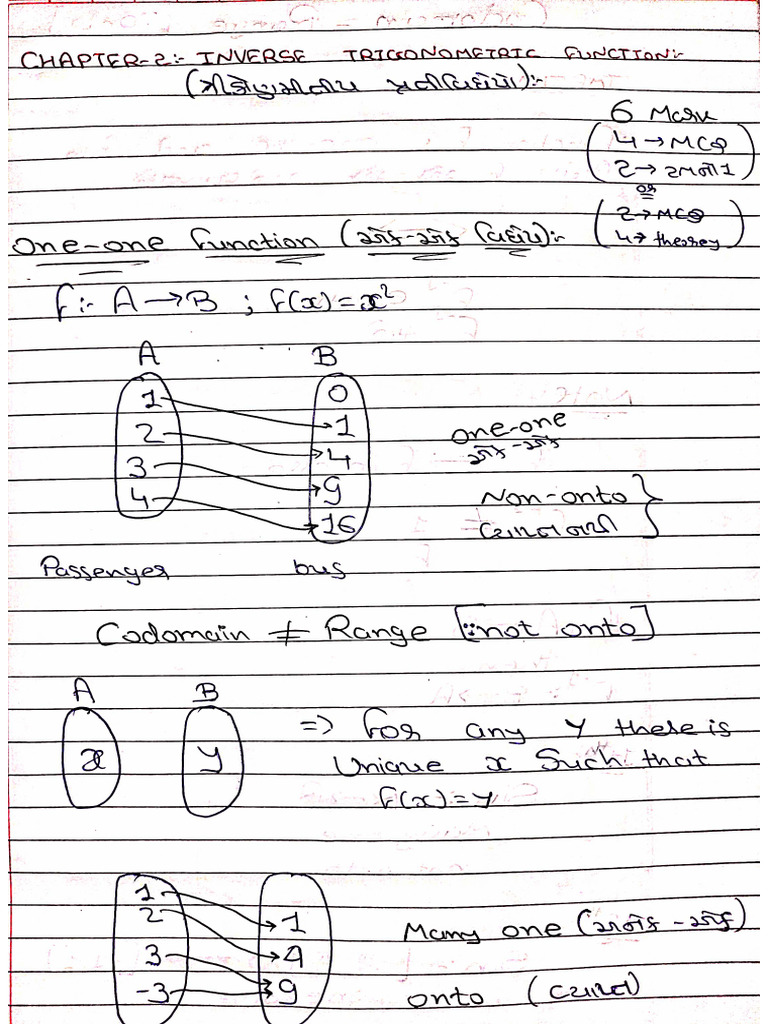 CHAPTER-2:- INVERSE TRIGONOMETRIC FUNCTION:-
(ત્રીકોણમીતીય પ્રતીવિધેયો):-
6 Mark
4 → MCQ
2 →
or
2 → MCQ
4 → theorey
One-one Function (એક-એક વિધેય):-
f:- A → B ; f(x) = x²
A B
1 0
2 1
3 4
4 9
16
one-one
એક-એક
Non-onto
વ્યાપ્ત નથી
Passenger bus
Codomain ≠ Range [∵ not onto]
A B
x y
⇒ For any y there is
Unique x Such that
f(x) = y
1
2 1
3 4
-3 9
Many one (અનેક-એક)
onto (વ્યાપ્ત)